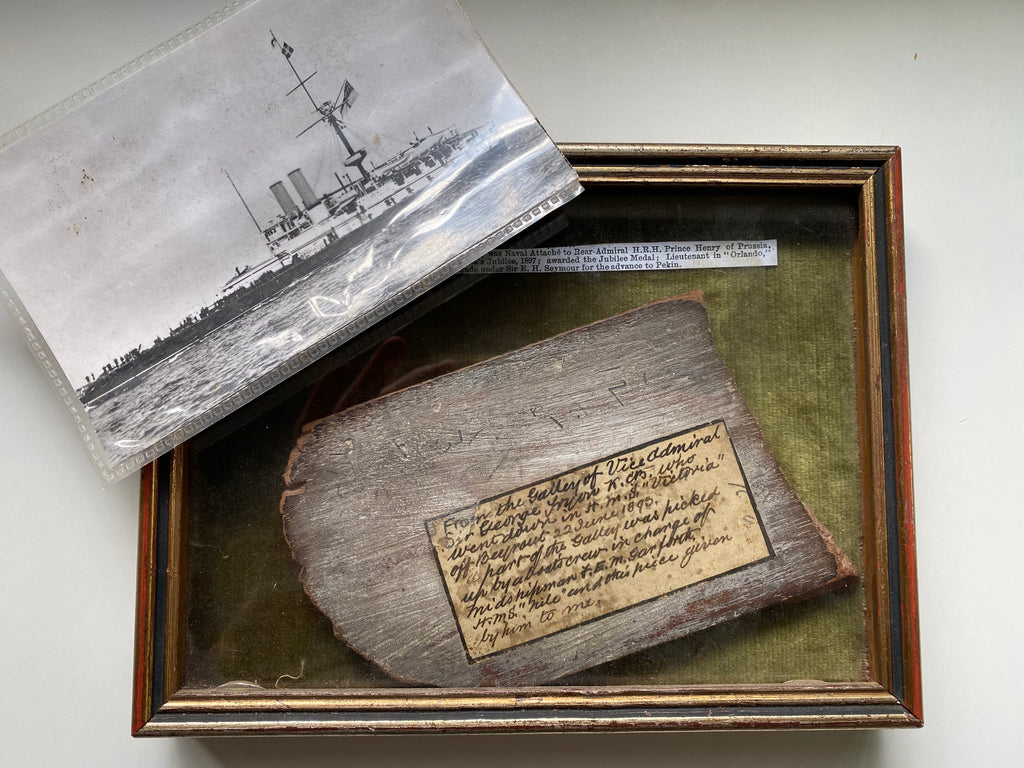 was Naval Attaché to Rear-Admiral H.R.H. Prince Henry of Prussia,
Jubilee, 1897; awarded the Jubilee Medal; Lieutenant in "Orlando,"
under Sir E. H. Seymour for the advance to Pekin.
From the Galley of Vice Admiral
Sir George Tryon K.C.B. who
went down in H.M.S. "Victoria"
off Beyrout 22 June 1893.
part of the Galley was picked
up by a boats crew in charge of
midshipman H.E.M. Garforth.
H.M.S. "Nile" and this piece given
by him to me.